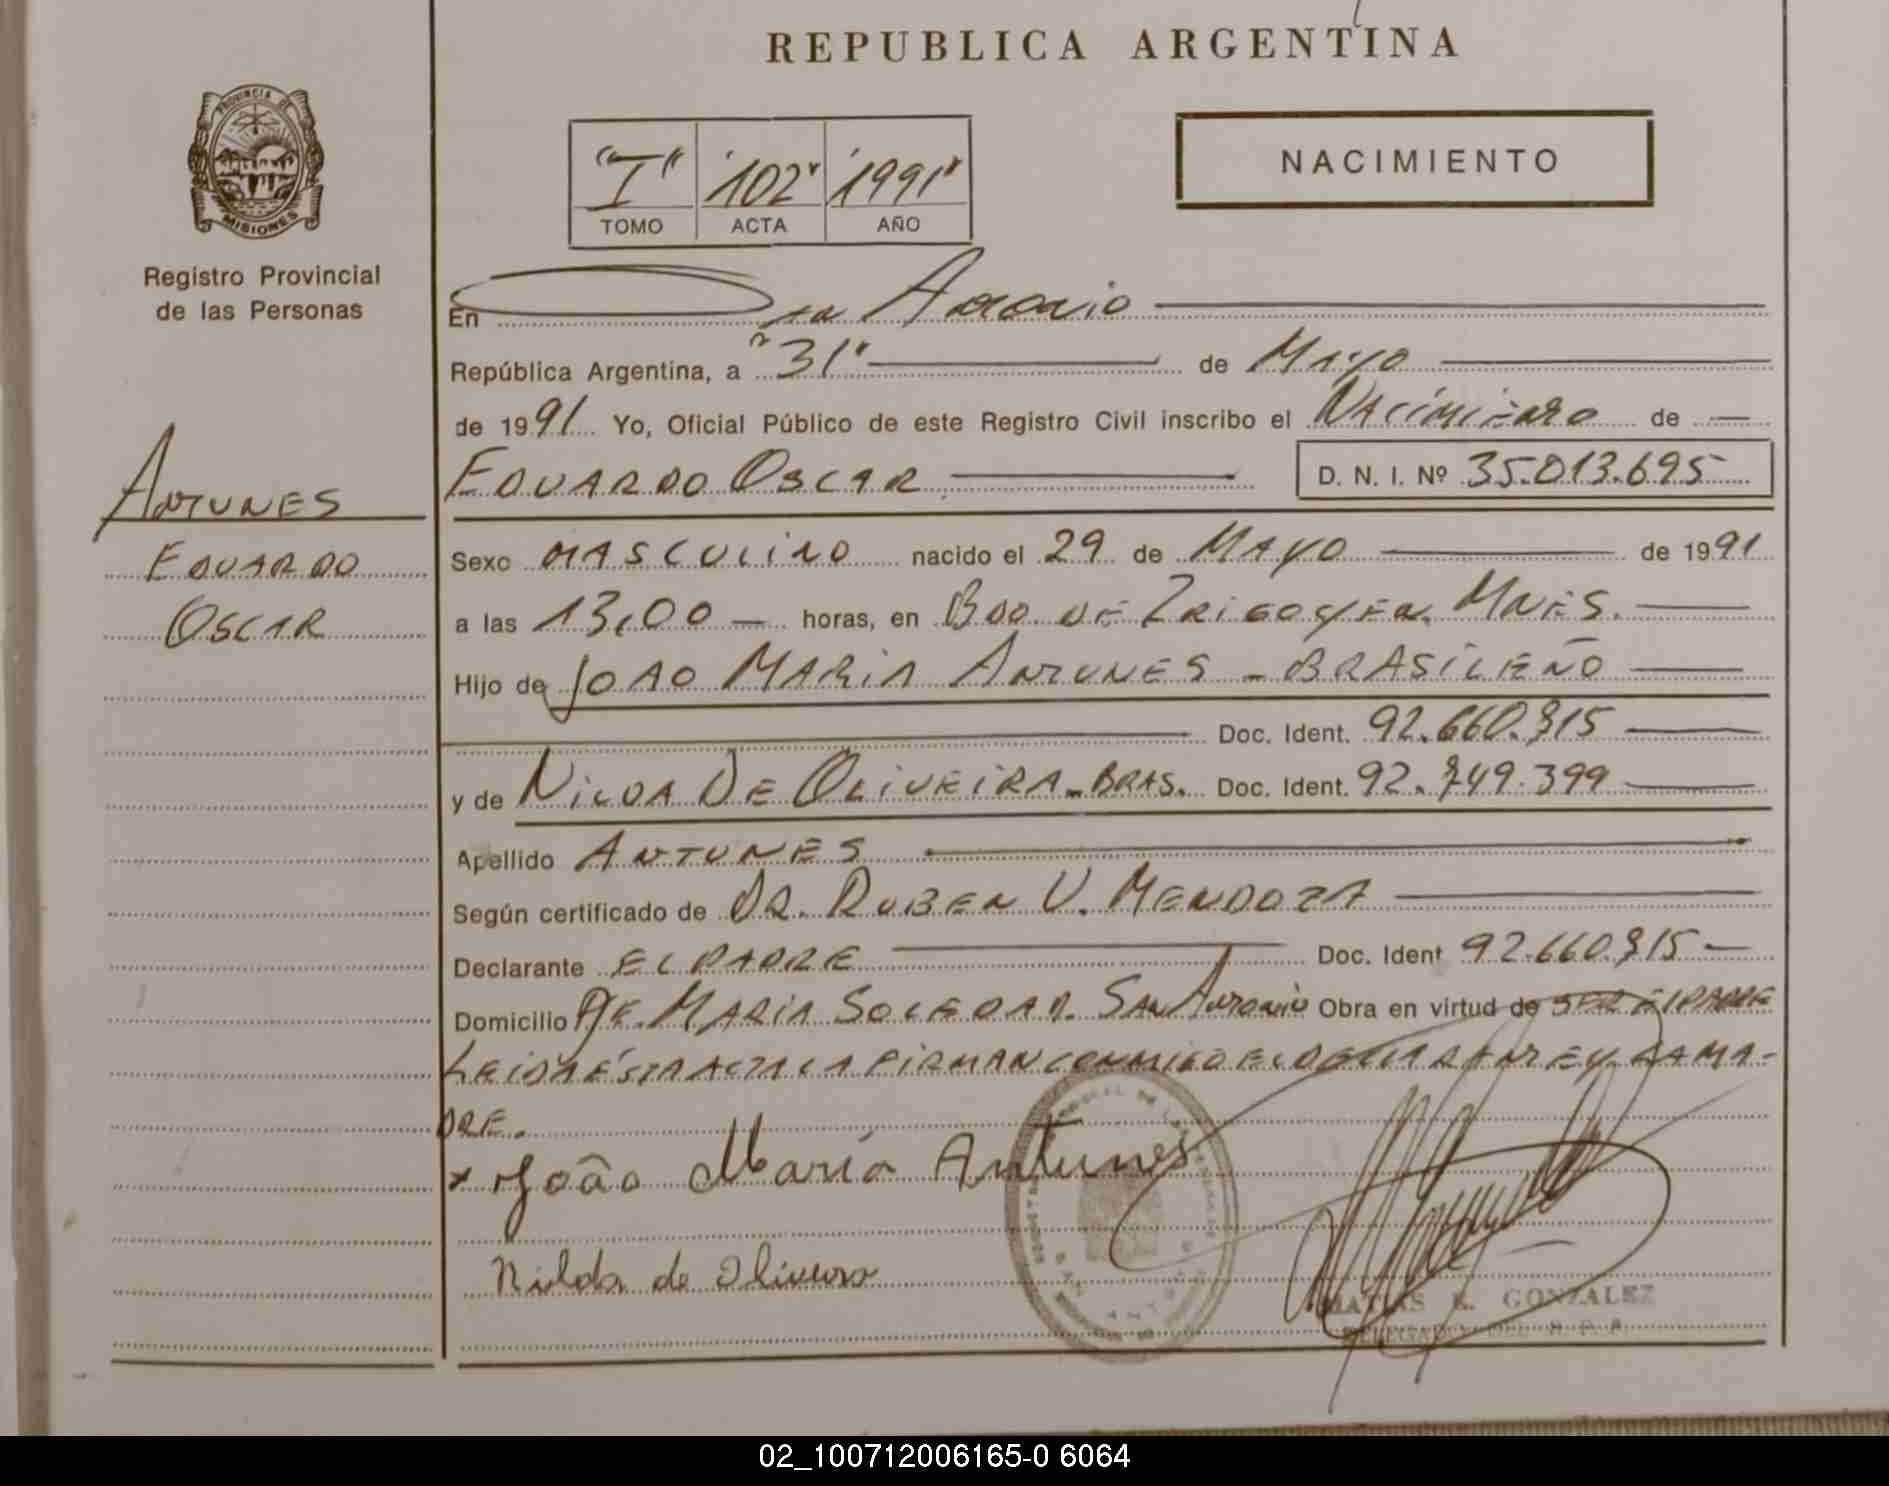 REPUBLICA ARGENTINA
PROVINCIA DE
MISIONES
Registro Provincial
de las Personas
"I" "102" "1991"
TOMO ACTA AÑO
NACIMIENTO
En San Antonio
República Argentina, a "31" de MAYO
de 1991 Yo, Oficial Público de este Registro Civil inscribo el NACIMIENTO de
EDUARDO OSCAR D. N. I. Nº 35.013.695
ANTUNES
EDUARDO
OSCAR
Sexo MASCULINO nacido el 29 de MAYO de 1991
a las 13,00 horas, en BDO. DE IRIGOYEN. MNES.
Hijo de JOAO MARIA ANTUNES - BRASILEÑO
Doc. Ident. 92.660.315
y de NILDA DE OLIVEIRA - BRAS. Doc. Ident. 92.749.399
Apellido ANTUNES
Según certificado de DR. RUBEN V. MENDOZA
Declarante EL PADRE Doc. Ident 92.660.315
Domicilio PJE. MARIA SOLEDAD. SAN ANTONIO Obra en virtud de SER EL PADRE
LEIDA ÉSTA ACTA LA FIRMAN CONMIGO EL DECLARANTE Y LA MA-
DRE.
x João María Antunes
Nilda de Olivera
MATIAS R. GONZALEZ
DELEGADO DEL R. P. P.
02_100712006165-0 6064